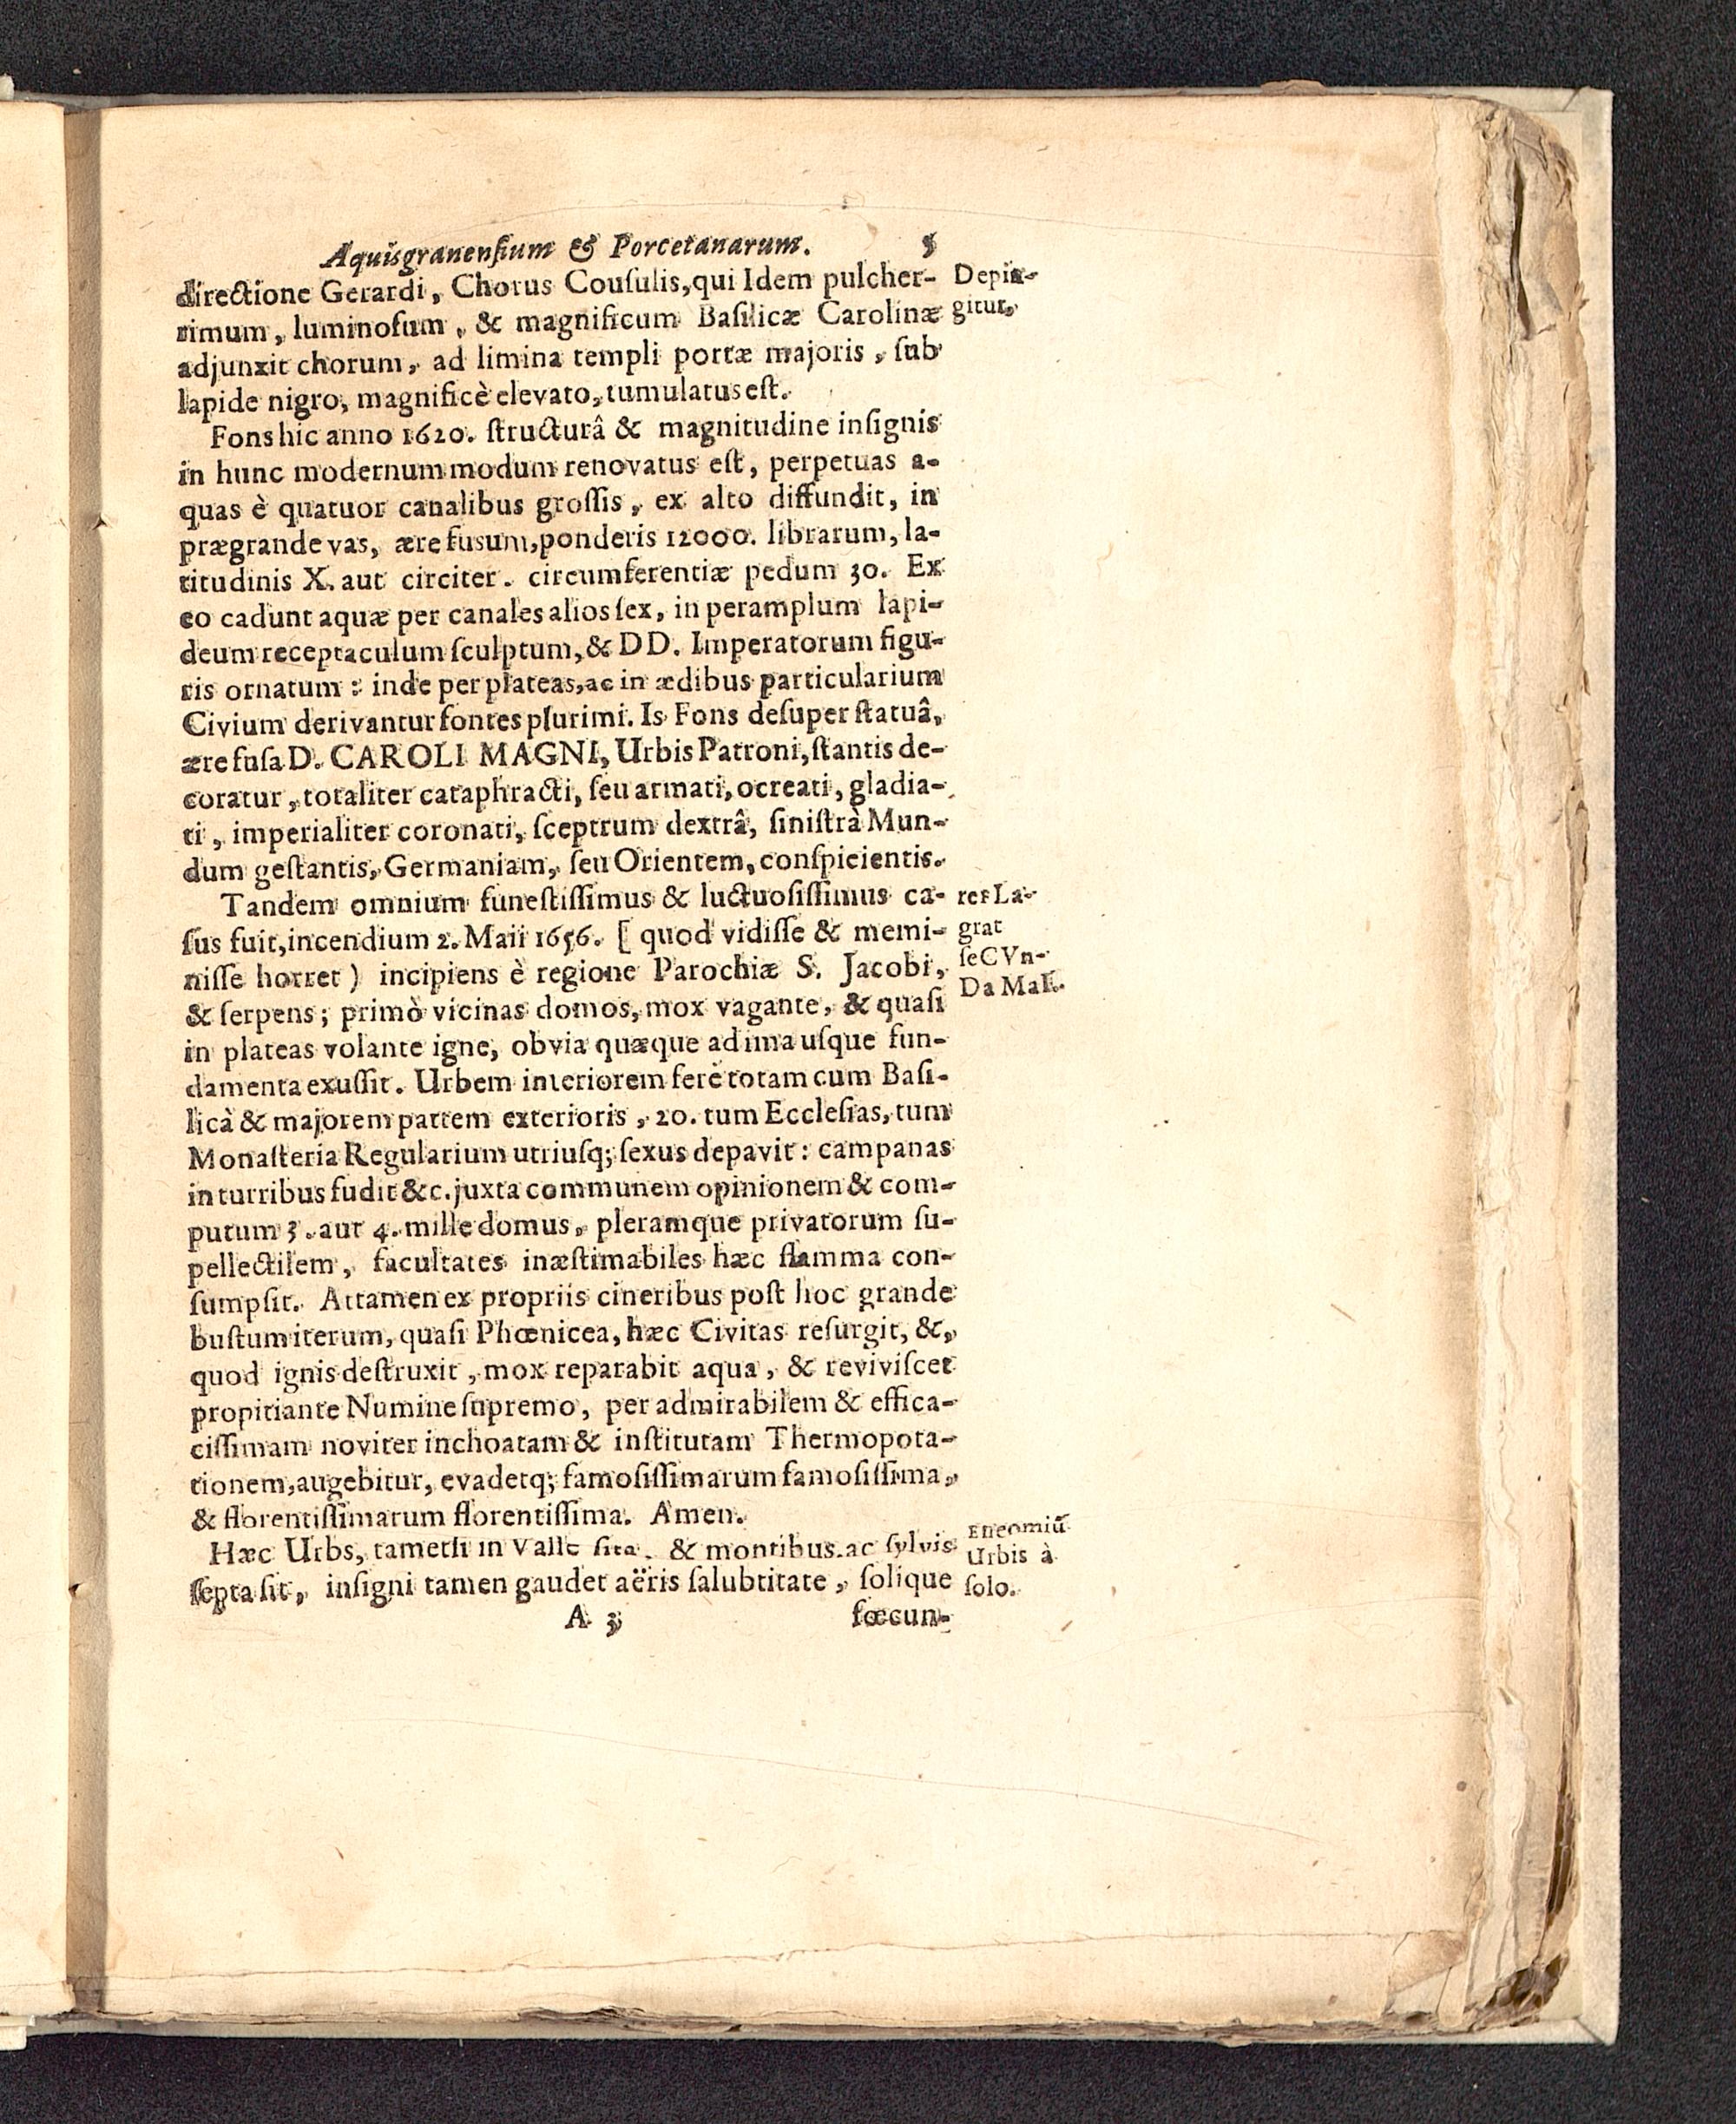 Aquisgranensium & Porcetanarum. 5
directione Gerardi, Chorus Cousulis, qui Idem pulcher-
rimum, luminosum, & magnificum Basilicæ Carolinæ
adjunxit chorum, ad limina templi portæ majoris, sub
lapide nigro, magnificè elevato, tumulatus est.
Depin-
gitur.
Fons hic anno 1620. structurâ & magnitudine insignis
in hunc modernum modum renovatus est, perpetuas a-
quas è quatuor canalibus grossis, ex alto diffundit, in
prægrande vas, ære fusum, ponderis 12000. librarum, la-
titudinis X. aut circiter. circumferentiæ pedum 30. Ex
eo cadunt aquæ per canales alios sex, in peramplum lapi-
deum receptaculum sculptum, & DD. Imperatorum figu-
ris ornatum: inde per plateas, ac in ædibus particularium
Civium derivantur fontes plurimi. Is Fons desuper statuâ,
ære fusa D. CAROLI MAGNI, Urbis Patroni, stantis de-
coratur, totaliter cataphracti, seu armati, ocreati, gladia-
ti, imperialiter coronati, sceptrum dextrâ, sinistrà Mun-
dum gestantis, Germaniam, seu Orientem, conspicientis.
Tandem omnium funestissimus & luctuosissimus ca-
sus fuit, incendium 2. Maii 1656. [ quod vidisse & memi-
nisse horret ) incipiens è regione Parochiæ S. Jacobi,
& serpens; primò vicinas domos, mox vagante, & quasi
in plateas volante igne, obvia quæque ad ima usque fun-
damenta exussit. Urbem interiorem ferè totam cum Basi-
licà & majorem partem exterioris, 20. tum Ecclesias, tum
Monasteria Regularium utriusq; sexus depavit: campanas
in turribus fudit &c. juxta communem opinionem & com-
putum 3. aut 4. mille domus, pleramque privatorum su-
pellectilem, facultates inæstimabiles hæc flamma con-
sumpsit. Attamen ex propriis cineribus post hoc grande
bustum iterum, quasi Phœnicea, hæc Civitas resurgit, &,
quod ignis destruxit, mox reparabit aqua, & reviviscet
propitiante Numine supremo, per admirabilem & effica-
cissimam noviter inchoatam & institutam Thermopota-
tionem, augebitur, evadetq; famosissimarum famosissima,
& florentissimarum florentissima. Amen.
La-
grat
seCVn-
Da MaII.
Hæc Urbs, tametsi in Valle sita, & montibus ac sylvis
septa sit, insigni tamen gaudet aëris salubtitate, solique
Encomiũ
Urbis à
solo.
A 3 fœcun-